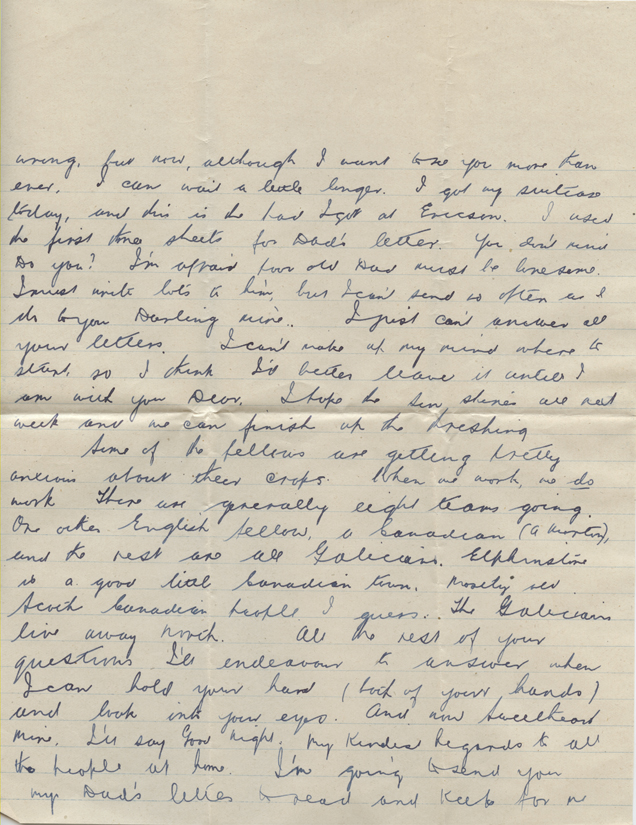 wrong, but now, although I want to see you more than
ever. I can wait a little longer. I got my suitcase
today, and this is the pad I got at Ericson. I used
the first three sheets for Dad's letter. You don't mind
Do you? I'm afraid poor old Dad must be lonesome.
I must write lots to him, but I can't send so often as I
do to you Darling mine. I just can't answer all
your letters. I can't make up my mind where to
start, so I think I'd better leave it until I
am with you Dear. I hope the sun shines all next
week and we can finish up the threshing
Some of the fellows are getting pretty
anxious about their crops. When we work, we do
work There are generally eight teams going.
One other English fellow, a Canadian
and the rest are all Galicians. Elphinstone
is a good little Canadian town. Mostly
Scotch Canadian people I guess. The Galicians
live away north. All the rest of your
questions I'll endeavour to answer when
I can hold your hand (both of your hands)
and look into your eyes. And now Sweetheart
Mine. I'll say Good Night. My Kindest Regards to all
the people at home. I'm going to send you
my Dad's letter to read and keep for me